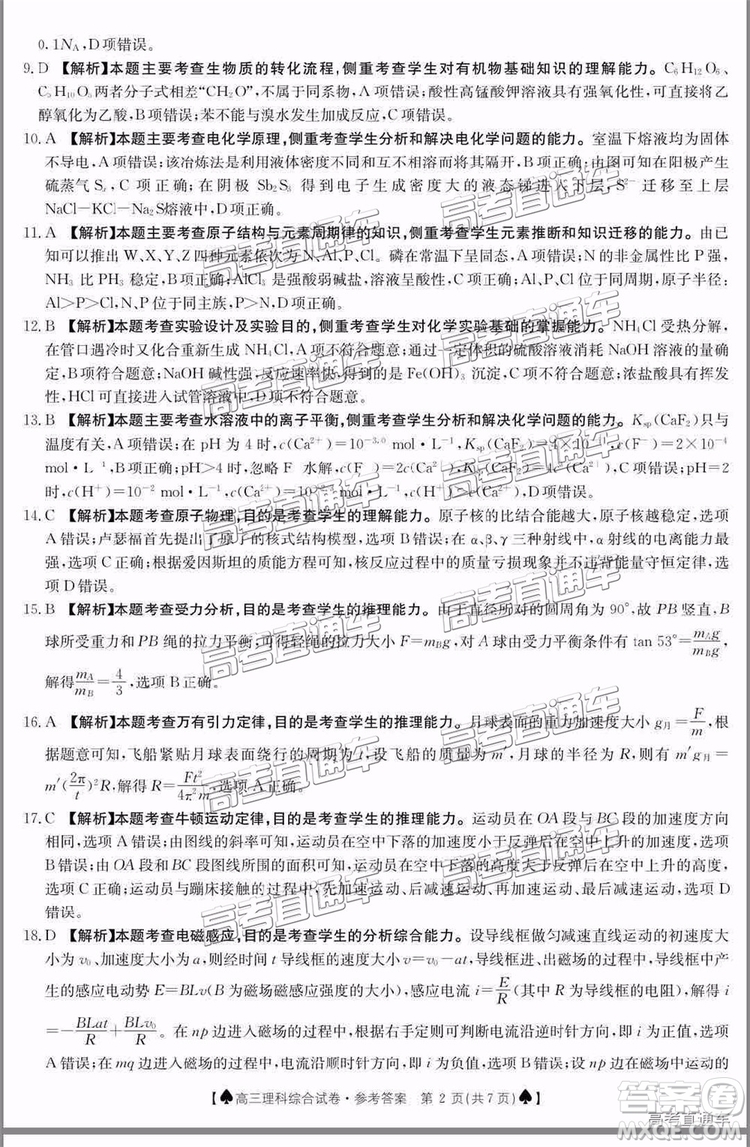 0.1N_A,D项错误。
9. D 【解析】本题主要考查生物质的转化流程,侧重考查学生对有机物基础知识的理解能力。C₆H₁₂O₆、
C₃H₆O₃两者分子式相差“CH₂O”,不属于同系物,A项错误;酸性高锰酸钾溶液具有强氧化性,可直接将乙
醇氧化为乙酸,B项错误;苯不能与溴水发生加成反应,C项错误。
10. A 【解析】本题主要考查电化学原理,侧重考查学生分析和解决电化学问题的能力。室温下熔液均为固体
不导电,A项错误;该冶炼法是利用液体密度不同和互不相溶而将其隔开,B项正确;由图可知在阳极产生
硫蒸气Sₓ,C项正确;在阴极 Sb₂S₃ 得到电子生成密度大的液态锑进入下层,S²⁻ 迁移至上层
NaCl—KCl—Na₂S熔液中,D项正确。
11. A 【解析】本题主要考查原子结构与元素周期律的知识,侧重考查学生元素推断和知识迁移的能力。由已
知可以推出W、X、Y、Z四种元素依次为N、Al、P、Cl。磷在常温下呈固态,A项错误;N的非金属性比P强,
NH₃ 比 PH₃ 稳定,B项正确;AlCl₃ 是强酸弱碱盐,溶液呈酸性,C项正确;Al、P、Cl 位于同周期,原子半径:
Al>P>Cl,N、P位于同主族,P>N,D项正确。
12. B 【解析】本题考查实验设计及实验目的,侧重考查学生对化学实验基础的掌握能力。NH₄Cl 受热分解,
在管口遇冷时又化合重新生成NH₄Cl,A项不符合题意;通过一定体积的硫酸溶液消耗 NaOH 溶液的量确
定,B项符合题意;NaOH碱性强,反应速率过快,得到的是 Fe(OH)₃ 沉淀,C项不符合题意;没有发生水
解,HCl可直接进入试管溶液中,D项不符合题意。
13. B 【解析】本题考查水溶液中的离子平衡,侧重考查学生分析和解决化学问题的能力。Ksp(CaF₂)只与
温度有关,A项错误;在 pH 为 4 时,c(Ca²⁺)=10⁻³·⁰ mol·L⁻¹,Ksp(CaF₂)
mol·L⁻¹,B项正确;pH>4时,忽略F⁻水解,c(F⁻)=2c(Ca²⁺),Ksp(CaF₂)=4c(Ca²⁺),C项错误;pH=2
时,c(H⁺)=10⁻² mol·L⁻¹,c(Ca²⁺) mol·L⁻¹,D项错误。
14. C 【解析】本题考查原子物理,目的是考查学生的理解能力。原子核的比结合能越大,原子核越稳定,选项
A错误;卢瑟福首先提出了原子的核式结构模型,选项B错误;在α、β、γ三种射线中,α射线的电离能力最
强,选项C正确;根据爱因斯坦的质能方程可知,核反应过程中的质量亏损现象并不违背能量守恒定律,选
项D错误。
15. B 【解析】本题考查受力分析,目的是考查学生的推理能力。由于直径所对的圆周角为90°,故PB竖直,B
球所受重力和PB绳的拉力平衡;可得轻绳的拉力大小F=m_Bg,对A球由受力平衡条件有tan 53°=m_Ag/m_Bg,
解得m_A/m_B=4/3,选项B正确。
16. A 【解析】本题考查万有引力定律,目的是考查学生的推理能力。月球表面的重力加速度大小g月=F/m,根
据题意可知,飞船紧贴月球表面飞行一周的时间为t,设飞船的质量为m′,月球的半径为R,则有m′g月=
m′(2π/t)²R,解得R=Ft²/4π²m,选项A正确。
17. C 【解析】本题考查牛顿运动定律,目的是考查学生的推理能力。运动员在OA段与BC段的加速度方向
相同,选项A错误;由图线的斜率可知,运动员在空中下落的加速度大小小于反弹后在空中上升的加速度,选项
B错误;由OA段和BC段图线所围的面积可知,运动员在空中下落的高度大于反弹后在空中上升的高度,
选项C正确;运动员与蹦床接触的过程中,先加速运动、后减速运动,再加速运动、减速运动,选项D
错误。
18. D 【解析】本题考查电磁感应,目的是考查学生的分析综合能力。设导线框做匀减速直线运动的初速度大
小为v₀、加速度大小为a,则后经时间t导线框的速度大小v=v₀-at,导线框进、出磁场的过程中,导线框产
生的感应电动势E=BLv(B为磁场磁感应强度的大小),感应电流i=E/R(其中R为导线框的电阻),解得i
=-BLat/R+BLv₀/R。在np边进入磁场的过程中,根据右手定则可判断电流沿逆时针方向,即i为正值,选项
A错误;在mq边进入磁场的过程中,电流沿顺时针方向,即i为负值,选项B错误;设np边在磁场中运动的
【♠高三理科综合试卷·参考答案 第2页(共7页)♠】
高考直通车
高考直通车
高考直通车
高考直通车
答案圈
MXQE.COM